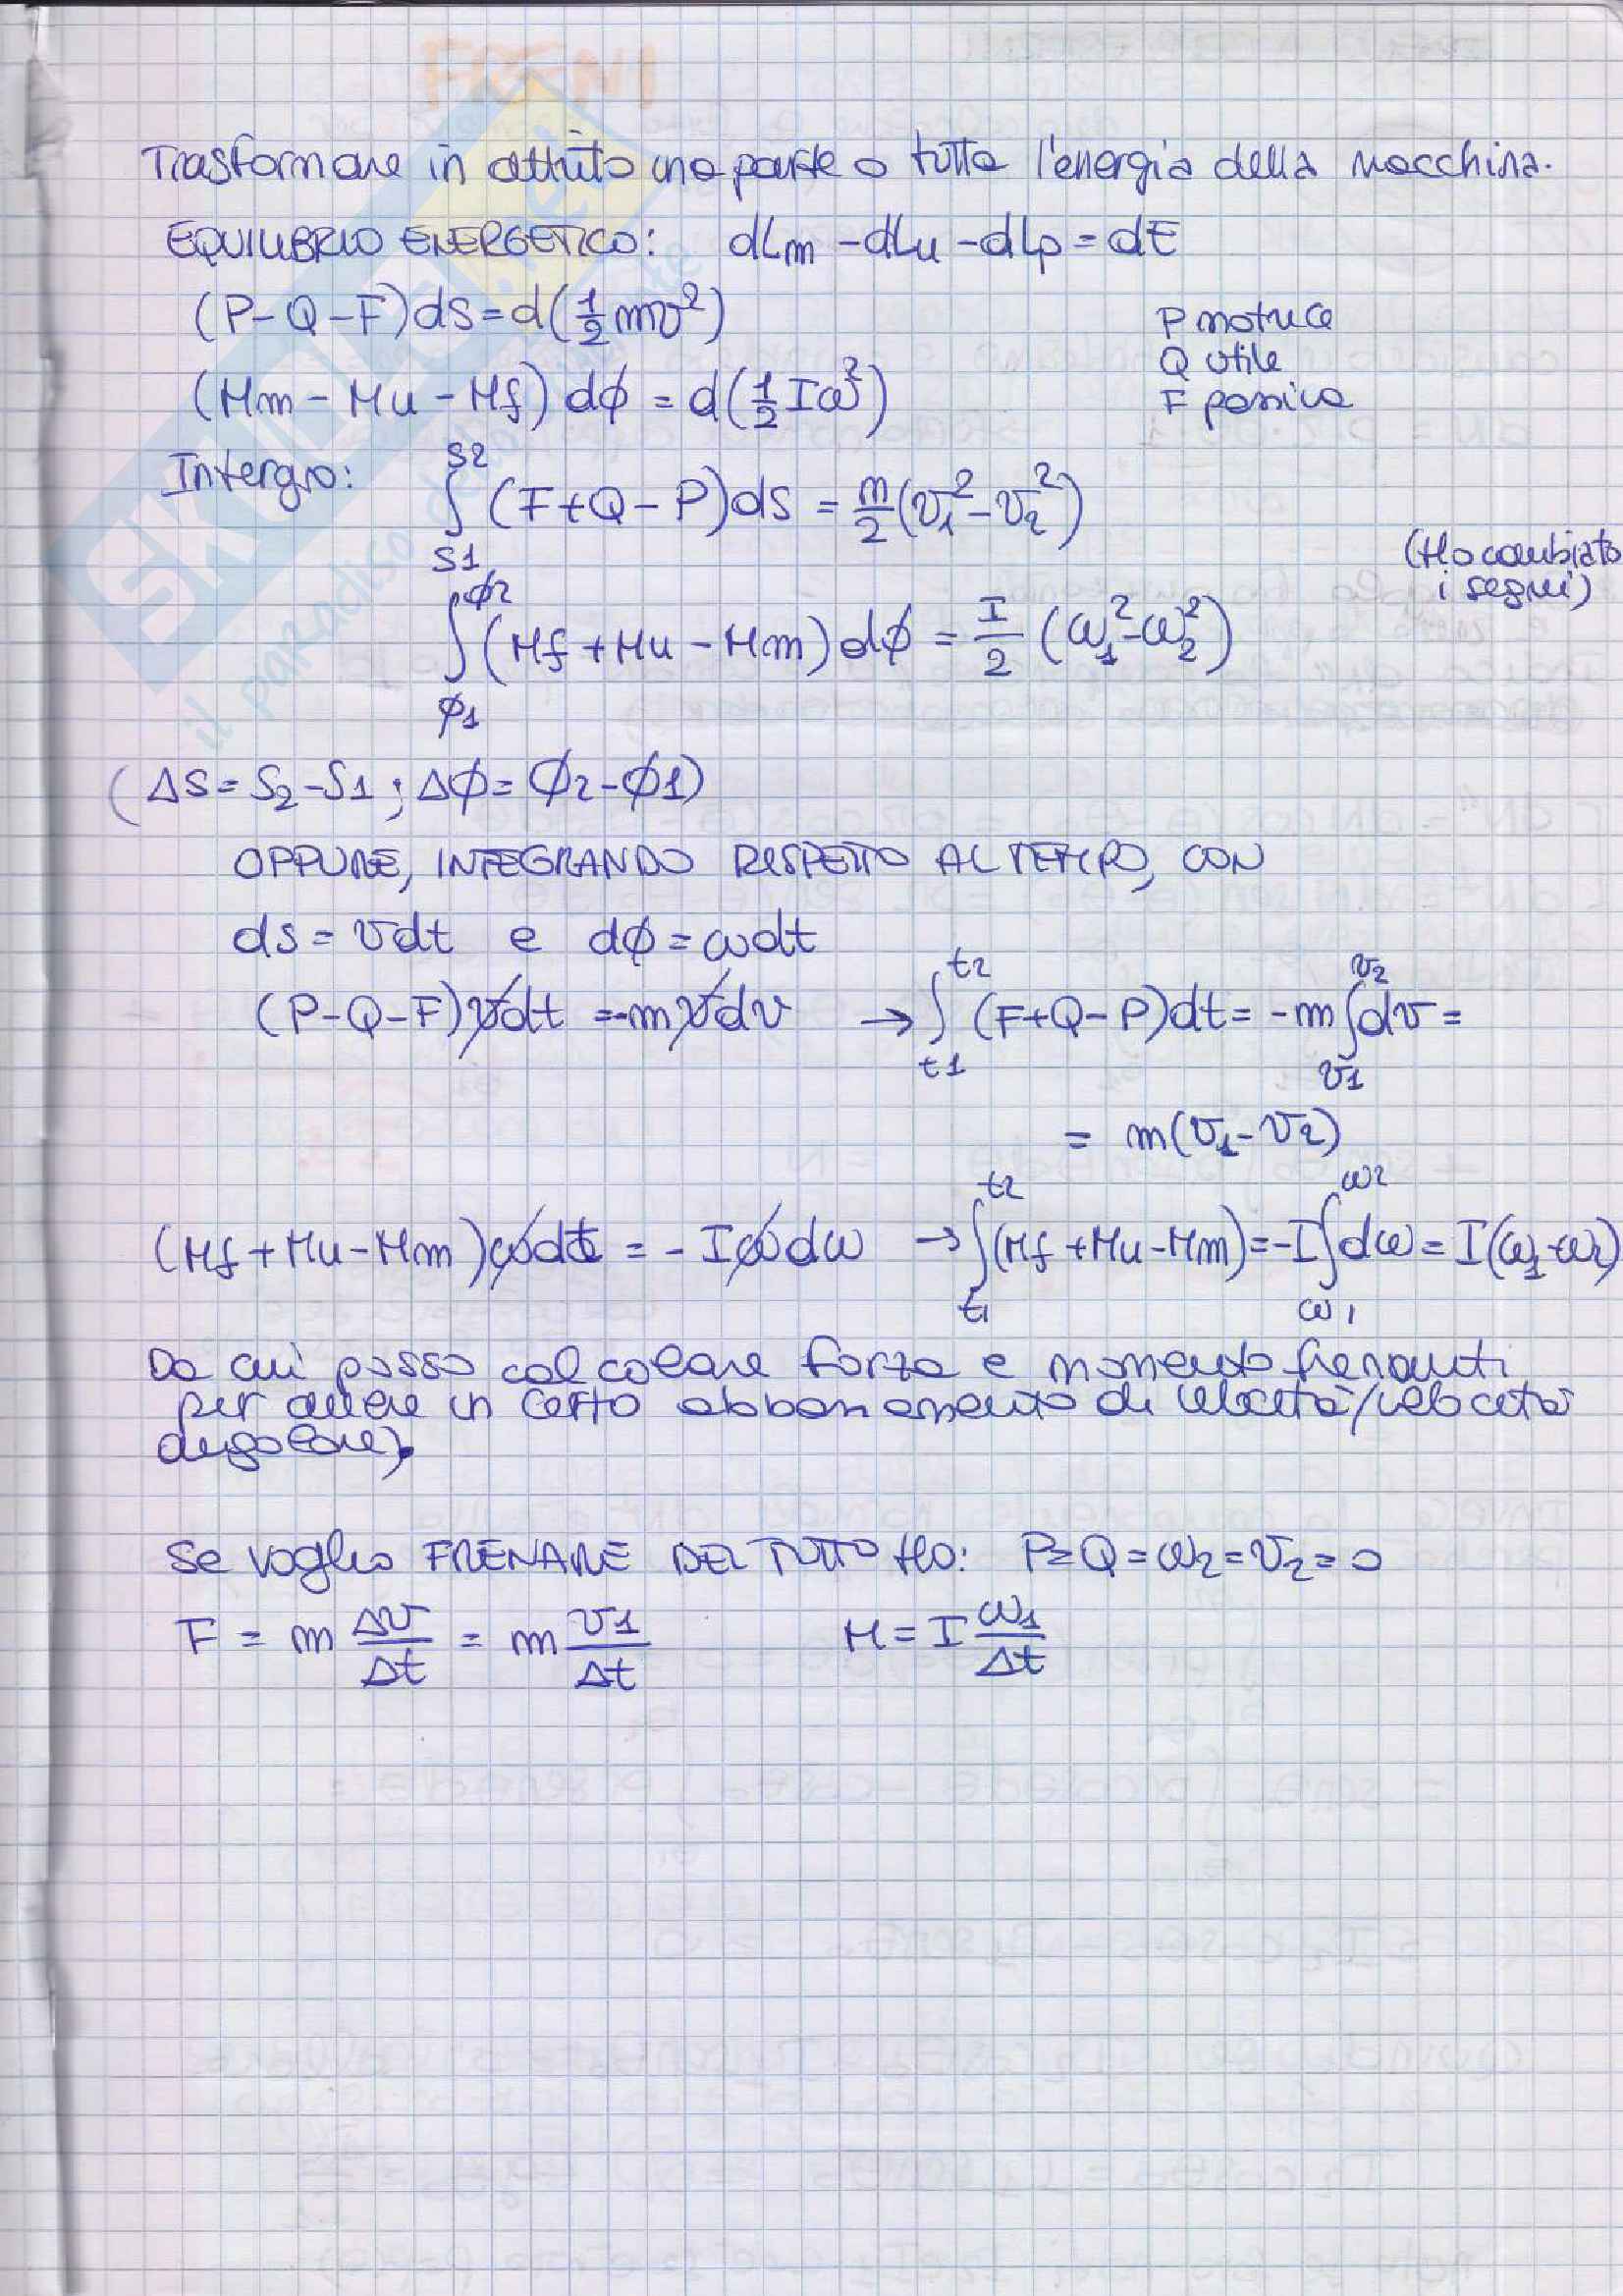 FRENI
Trasformare in attrito una parte o tutta l'energia della macchina.
EQUILIBRIO ENERGETICO: dLm - dLu - dLp = dE
(P-Q-F)ds = d(1/2 mv²)
P motrice
(Mm - Mu - Mf) dφ = d(1/2 Iω²)
Q utile
F passiva
Intergro: ∫_{S1}^{S2} (F+Q-P)ds = m/2 (v₁² - v₂²)
(Ho cambiato
i segni)
∫_{φ1}^{φ2} (Mf + Mu - Mm) dφ = I/2 (ω₁² - ω₂²)
(ΔS = S₂-S1 ; Δφ = φ₂-φ1)
OPPURE, INTEGRANDO RISPETTO AL TEMPO, CON
ds = vdt e dφ = ωdt
(P-Q-F)vdt = -mvdv → ∫_{t1}^{t2} (F+Q-P)dt = -m ∫_{v1}^{v2} dv =
= m(v₁-v₂)
(Mf + Mu - Mm) ωdt = - Iωdω → ∫_{t1}^{t2} (Mf + Mu - Mm) = -I ∫_{ω1}^{ω2} dω = I(ω₁-ω₂)
Da cui posso calcolare forza e momento frenanti
per avere un certo abbassamento di velocità/velocità
angolare).
Se voglio FRENARE DEL TUTTO HO: P=Q=ω₂=v₂=0
F = m Δv/Δt = m v1/Δt M = I ω1/Δt
SKUOLA.net
il paradiso dello studente